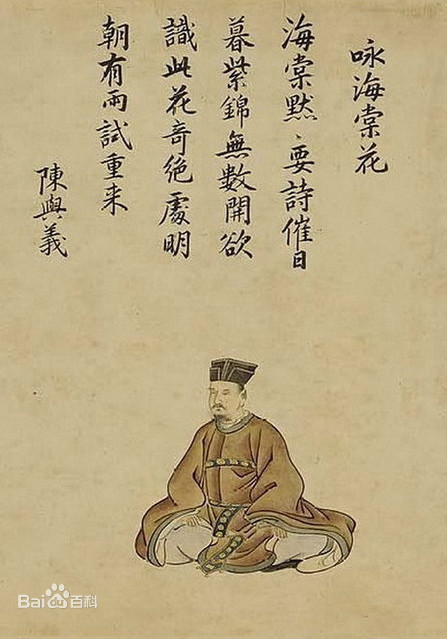 咏海棠花
海棠黙〻要詩催日
暮紫錦無數開欲
識此花奇絶處明
朝有雨試重来
陳與義
Bai百科